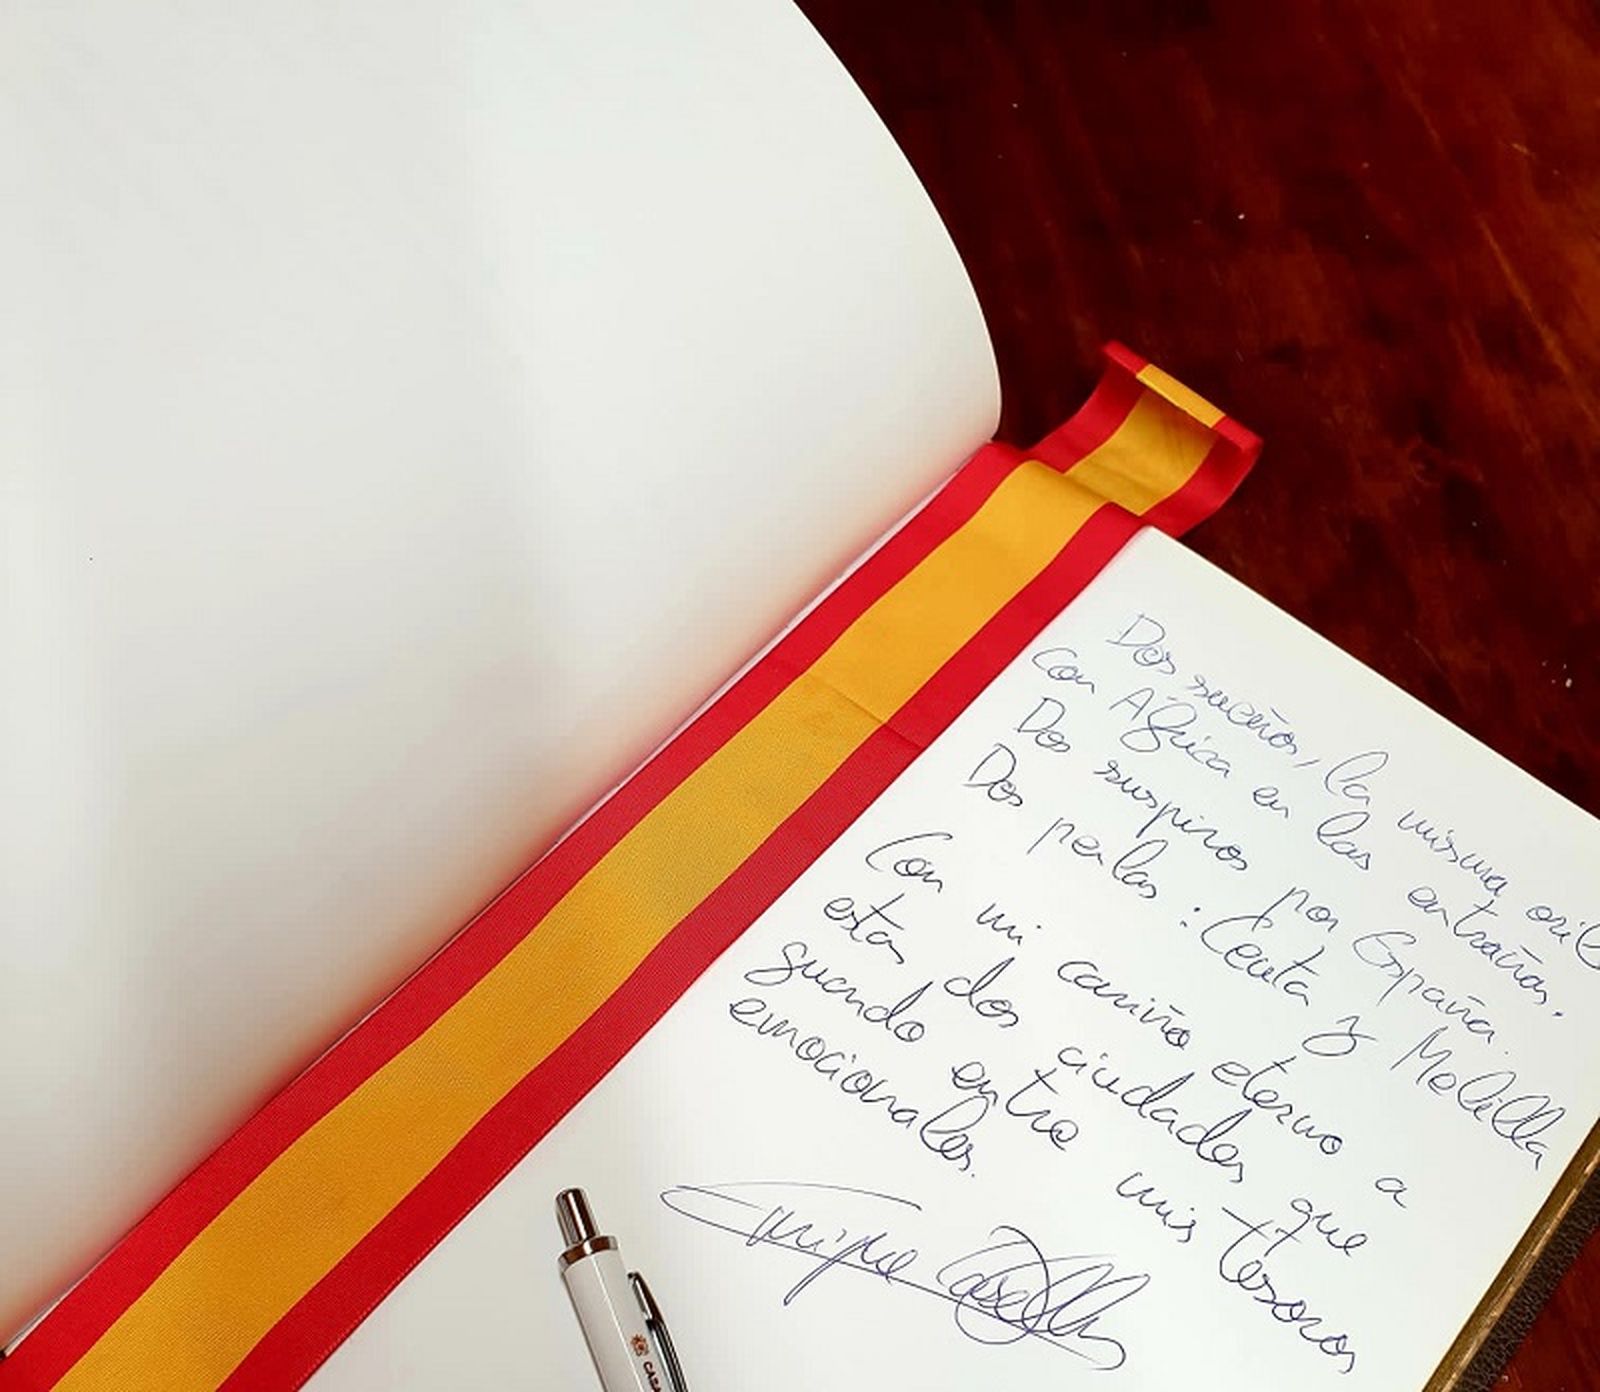 Dos sueños, la misma oril
con África en las entrañas.
Dos suspiros por España.
Dos perlas: Ceuta y Melilla
Con mi cariño eterno a
estas dos ciudades que
guardo entre mis tesoros
emocionales.
Enrique Casellas
CASA